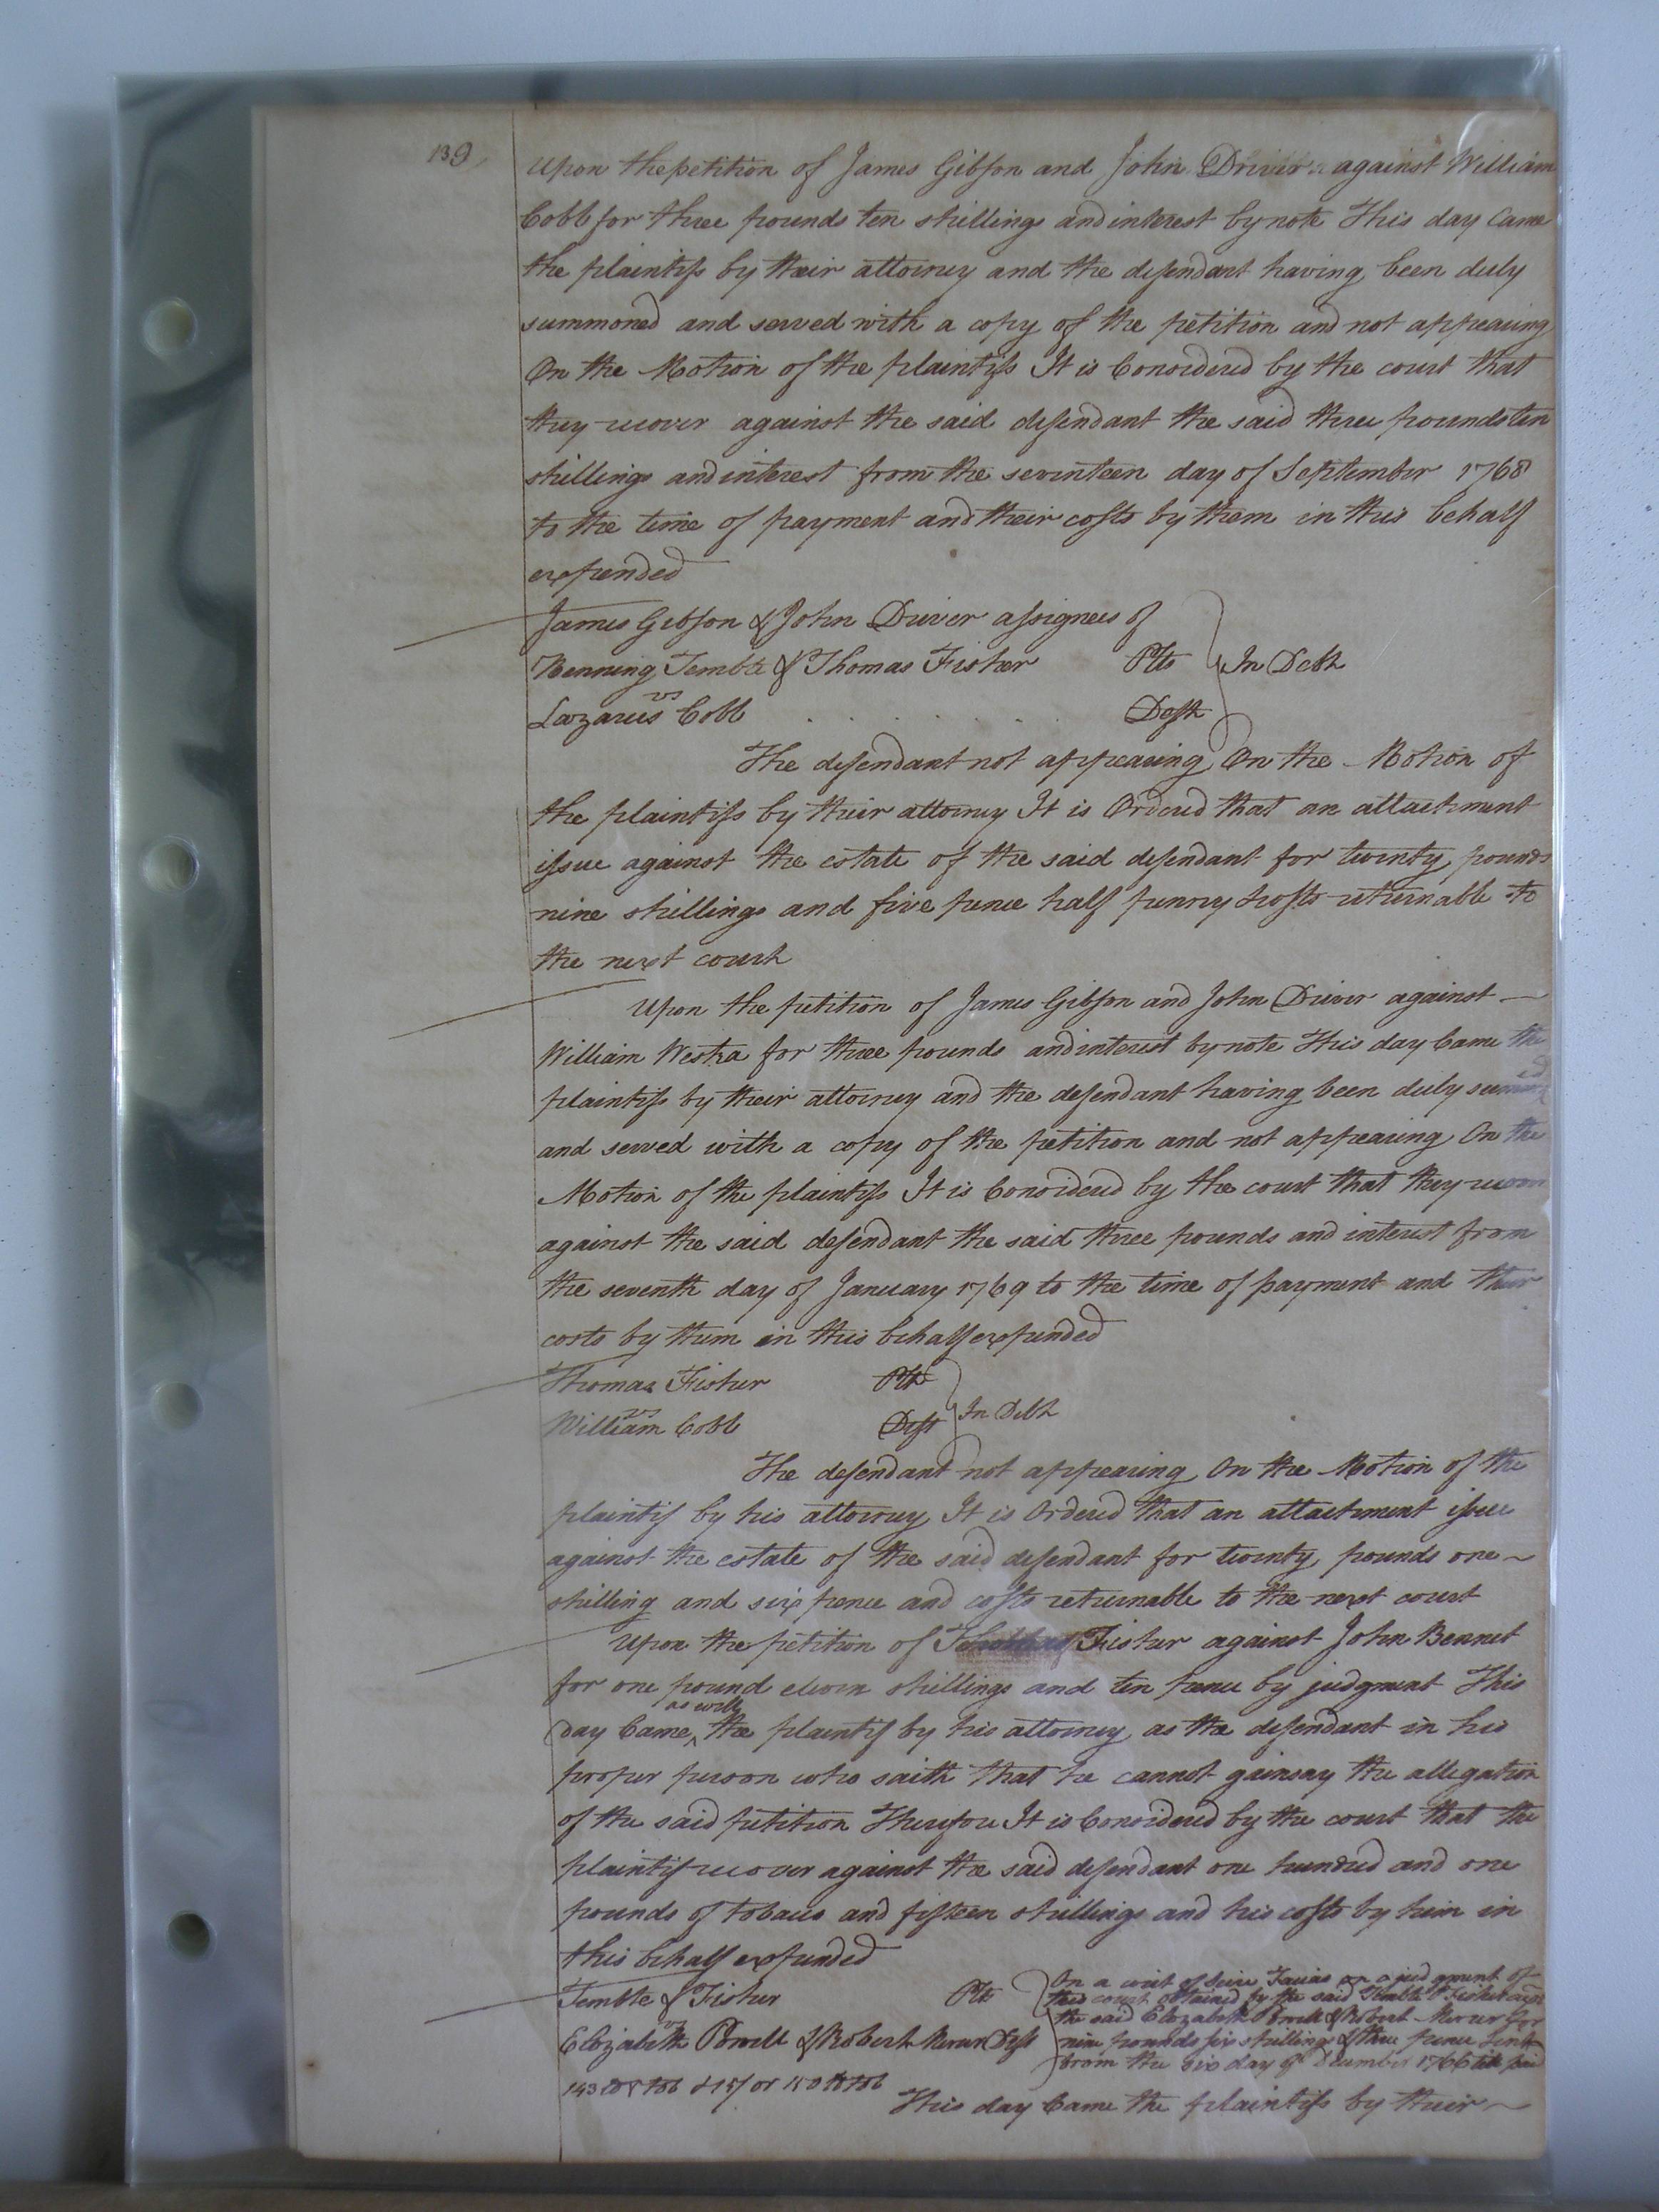 139
Upon the petition of James Gibson and John Driver against William
Cobb for three pounds ten shillings and interest by note This day Came
the plaintifs by their attorney and the defendant having been duly
summoned and served with a copy of the petition and not appearing
On the Motion of the plaintifs It is Considered by the court that
they recover against the said defendant the said three pounds ten
shillings and interest from the seventeen day of September 1768
to the time of payment and their costs by them in this behalf
expended
James Gibson & John Driver assignees of
Henning Tembte & Thomas Fisher Plts In Debt
vs
Lazarus Cobb Deft
The defendant not appearing On the Motion of
the plaintifs by their attorney It is Ordered that an attachment
issue against the estate of the said defendant for twenty pounds
nine shillings and five pence half penny & costs returnable to
the next court
Upon the petition of James Gibson and John Driver against
William Westra for three pounds and interest by note This day Came the
plaintifs by their attorney and the defendant having been duly summoned
and served with a copy of the petition and not appearing On the
Motion of the plaintifs It is Considered by the court that they recover
against the said defendant the said three pounds and interest from
the seventh day of January 1769 to the time of payment and their
costs by them in this behalf expended
Thomas Fisher Plt
vs In Debt
William Cobb Deft
The defendant not appearing On the Motion of the
plaintif by his attorney It is Ordered that an attachment issue
against the estate of the said defendant for twenty pounds one
shilling and six pence and costs returnable to the next court
Upon the petition of Fisher against John Bennet
for one pound eleven shillings and ten pence by judgment This
day Came as well the plaintif by his attorney as the defendant in his
proper person who saith that he cannot gainsay the allegation
of the said petition Therefore It is Considered by the court that the
plaintif recover against the said defendant one hundred and one
pounds of tobacco and fifteen shillings and his costs by him in
this behalf expended
Tembte & Fisher Plts
vs
Elizabeth Powell & Robert Mercer Defts
On a writ of Scire Facias on a judgment of
this court obtained by the said Tembte & Fisher against
the said Elizabeth Powell & Robert Mercer for
nine pounds six shillings & three pence
from the six day of December 1766 till paid
143 tob & 15/ or 150 tob
This day Came the plaintifs by their